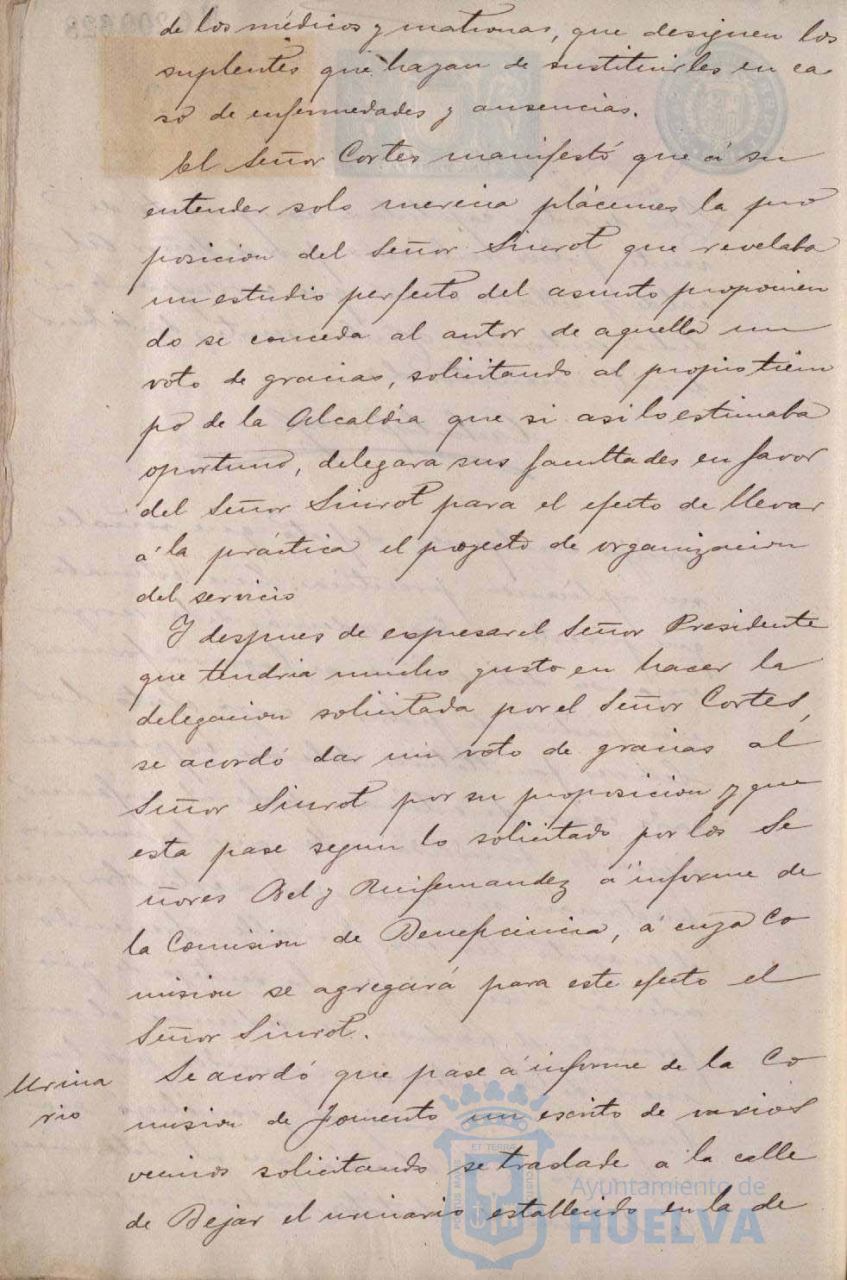 de los médicos y matronas, que designen los
suplentes que hayan de sustituirles en ca
so de enfermedades y ausencias.
El Señor Cortes manifestó que á su
entender solo merecia plácemes la pro
posicion del Señor Siurot que revelaba
un estudio perfecto del asunto proponien
do se conceda al autor de aquella un
voto de gracias, solicitando al propio tiem
po de la Alcaldia que si asi lo estimaba
oportuno, delegara sus facultades en favor
del Señor Siurot para el efecto de llevar
á la práctica el proyecto de organizacion
del servicio
Y despues de expresar el Señor Presidente
que tendria mucho gusto en hacer la
delegacion solicitada por el Señor Cortes,
se acordó dar un voto de gracias al
Señor Siurot por su proposicion y que
esta pase segun lo solicitado por los Se
ñores Bel y Ruifernandez á informe de
la Comision de Beneficencia, á cuya Co
mision se agregará para este efecto el
Señor Siurot.
Urina
rio
Se acordó que pase á informe de la Co
mision de Fomento un escrito de varios
vecinos solicitando se traslade á la calle
de Bejar el urinario establendo en la de
Ayuntamiento de
HUELVA